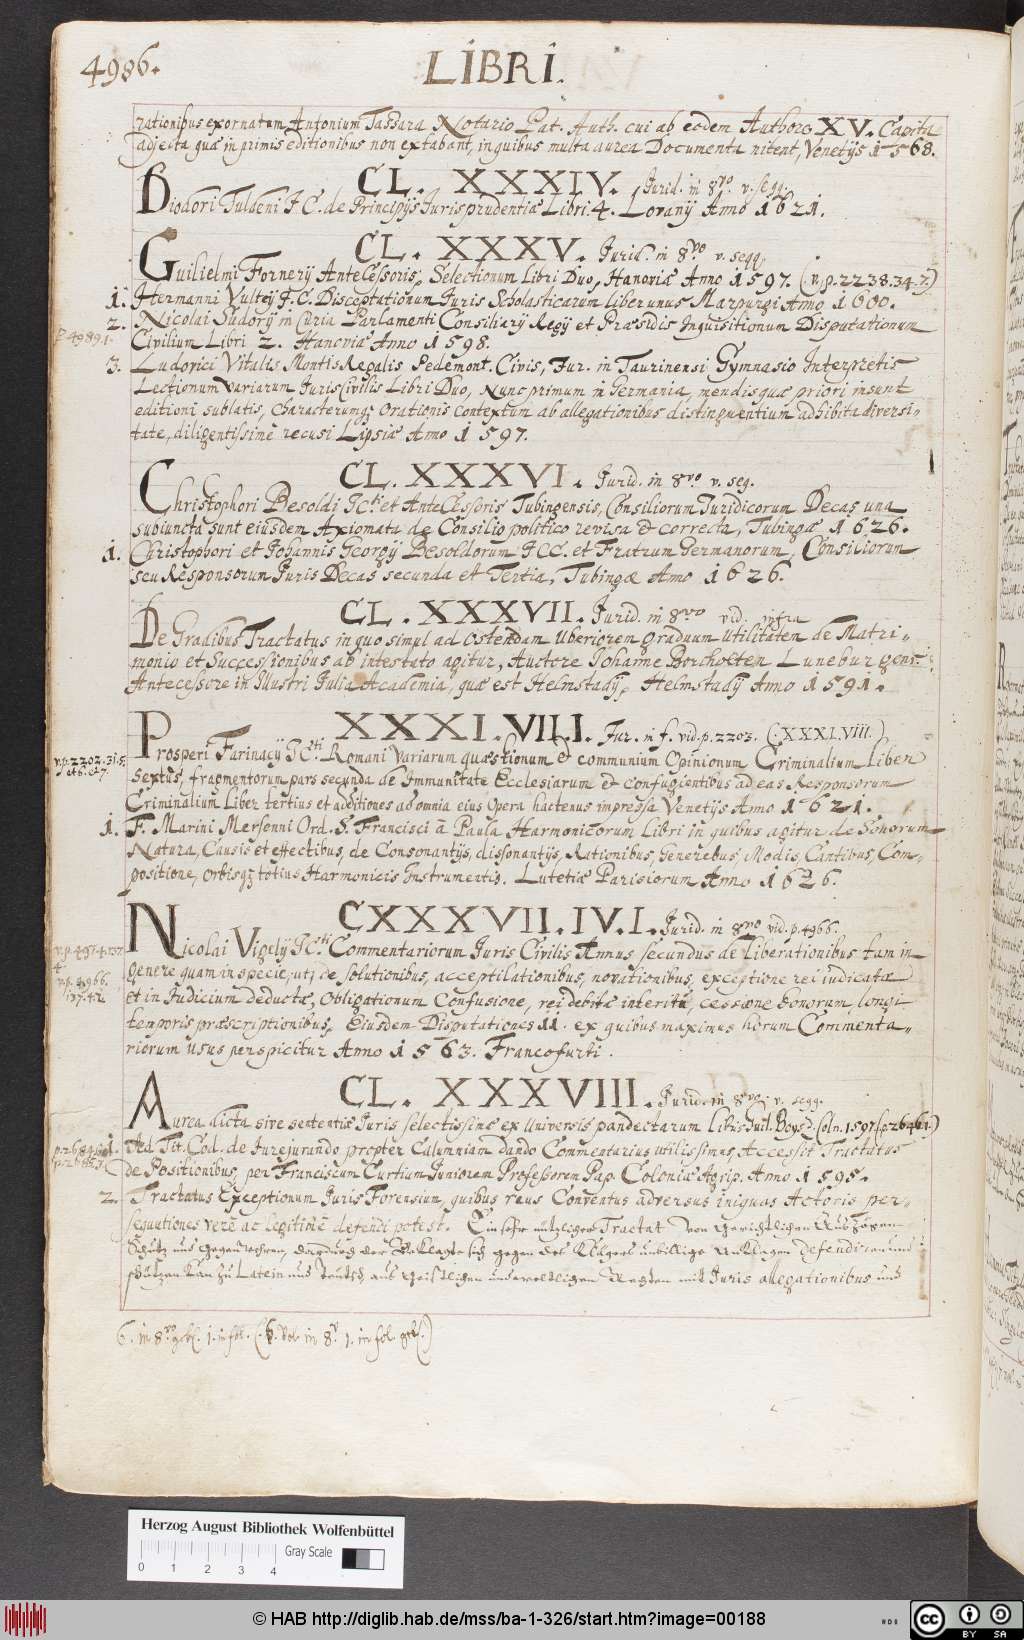 4986.
LIBRI.
rationibus exornatum Antonium Tassara Notario Pat. Auth. cui ab eodem Authore XV. Capita
adjecta quæ in primis editionibus non extabant, in quibus multa aurea Documenta nitent, Venetijs 1568.
CL. XXXIV. Jurid. in 8vo. v. seqq.
Diodori Tuldeni JC. de Principijs Jurisprudentiæ Libri. 4. Lovanij Anno 1621.
CL. XXXV. Jurid. in 8vo v. seqq.
Guilielmi Fornerij Antecessoris, Selectionum Libri Duo, Hanoviæ Anno 1597. (v.p. 2238.34.7.)
1. Hermanni Vulteij J.C. Disceptationum Juris Scholasticarum liber unus Marpurgi Anno 1600.
2. Nicolai Sudorij in Curia Parlamenti Consiliarij Regij et Præsidis Inquisitionum Disputationum
p. 4989.1.
Civilium Libri 2. Hanoviæ Anno 1598.
3. Ludovici Vitalis Montis Regalis Pedemont. Civis, Jur. in Taurinensi Gymnasio Interpretis
Lectionum variarum Juris Civilis Libri Duo, Nunc primum in Germania, mendisquæ priori insunt
editioni sublatis, Characterumq; orationis contextum ab allegationibus distinguentium adhibita diversi-
tate, diligentissimè recusi Lipsiæ Anno 1597.
CL. XXXVI. Jurid. in 8vo v. seq.
Christophori Besoldi JCti et Antecessoris Tubingensis, Consiliorum Juridicorum Decas una
subiuncta sunt eiusdem Axiomata de Consilio politico revisa & correcta, Tubingæ 1626.
1. Christophori et Johannis Georgij Besoldorum JCC. et Fratrum Germanorum, Consiliorum
seu Responsorum Juris Decas secunda et Tertia, Tubingæ Anno 1626.
CL. XXXVII. Jurid. in 8vo vid. infra
De Gradibus Tractatus in quo simul ad ostendam Uberiorem graduum utilitatem de Matri-
monio et Successionibus ab intestato agitur, Auctore Johanne Borcholten Luneburgens:
Antecessore in Illustri Julia Academia, quæ est Helmstadij, Helmstadij Anno 1591.
XXXI.VIII. Jur. in f. vid. p. 2203. (XXXI.VIII.)
Prosperi Farinacij JCti. Romani Variarum quæstionum & communium Opinionum Criminalium Liber
v.p. 2202.31.5.
et 6. et 7.
Sextus, fragmentorum pars secunda de Immunitate Ecclesiarum & confugientibus ad eas Responsorum
Criminalium Liber tertius et additiones ad omnia eius Opera hactenus impressa Venetijs Anno 1621.
1. F. Marini Mersenni Ord. S. Francisci à Paula Harmonicorum Libri in quibus agitur de Sonorum
Natura, Causis et effectibus, de Consonantijs, dissonantijs, Rationibus, Generebus, Modis, Cantibus, Com-
positione, orbisq; totius Harmonicis Instrumentis. Lutetiæ Parisiorum Anno 1626.
CXXXVII.IV.I. Jurid. in 8vo vid. p. 4966.
Nicolai Vigelij JCti Commentariorum Juris Civilis Annus secundus de Liberationibus tam in
v.p. 4966.
137.42
genere quam in specie, utj de solutionibus, acceptilationibus, novationibus, exceptione rei iudicatæ
et in Judicium deductæ, obligationum Confusione, rei debitæ interitu, cessione bonorum, longi
temporis præscriptionibus, Eiusdem Disputationes 11. ex quibus maximus horum Commenta-
riorum usus perspicitur Anno 1563. Francofurti.
CL. XXXVIII. Jurid. in 8vo. v. seqq.
Aurea dicta sive sententiæ Juris selectissimæ ex universis pandectarum libris Guil. Boys d. Coln. 1597 (p. 2646.1.)
1. Ad Tit. Cod. de Jurejurando propter Calumniam dando Commentarius utilissimus, Accessit Tractatus
de Positionibus, per Franciscum Curtium Juniorem Professorem Pap. Coloniæ Agrip. Anno 1595.
2. Tractatus Exceptionum Juris Forensium, quibus reus Conventus adversus iniquas Actoris per-
sequutiones verè ac legitimè defendi potest. Ein sehr nützlicher Tractat von gerichtlichen Auszügen
Schutz und gegenwehren, dardurch der Beklagte sich gegen des Klägers unbillige Anklagen defendiren und
schützen kan zu Latein und Teutsch aus Geistlichen und weltlichen Rechten mit Juris allegationibus und
6. in 8vo gebl. 1. in fol. (6. vol. in 8v. 1. in fol. gebl.)
Herzog August Bibliothek Wolfenbüttel
Gray Scale
0 1 2 3 4
© HAB http://diglib.hab.de/mss/ba-1-326/start.htm?image=00188
BY SA